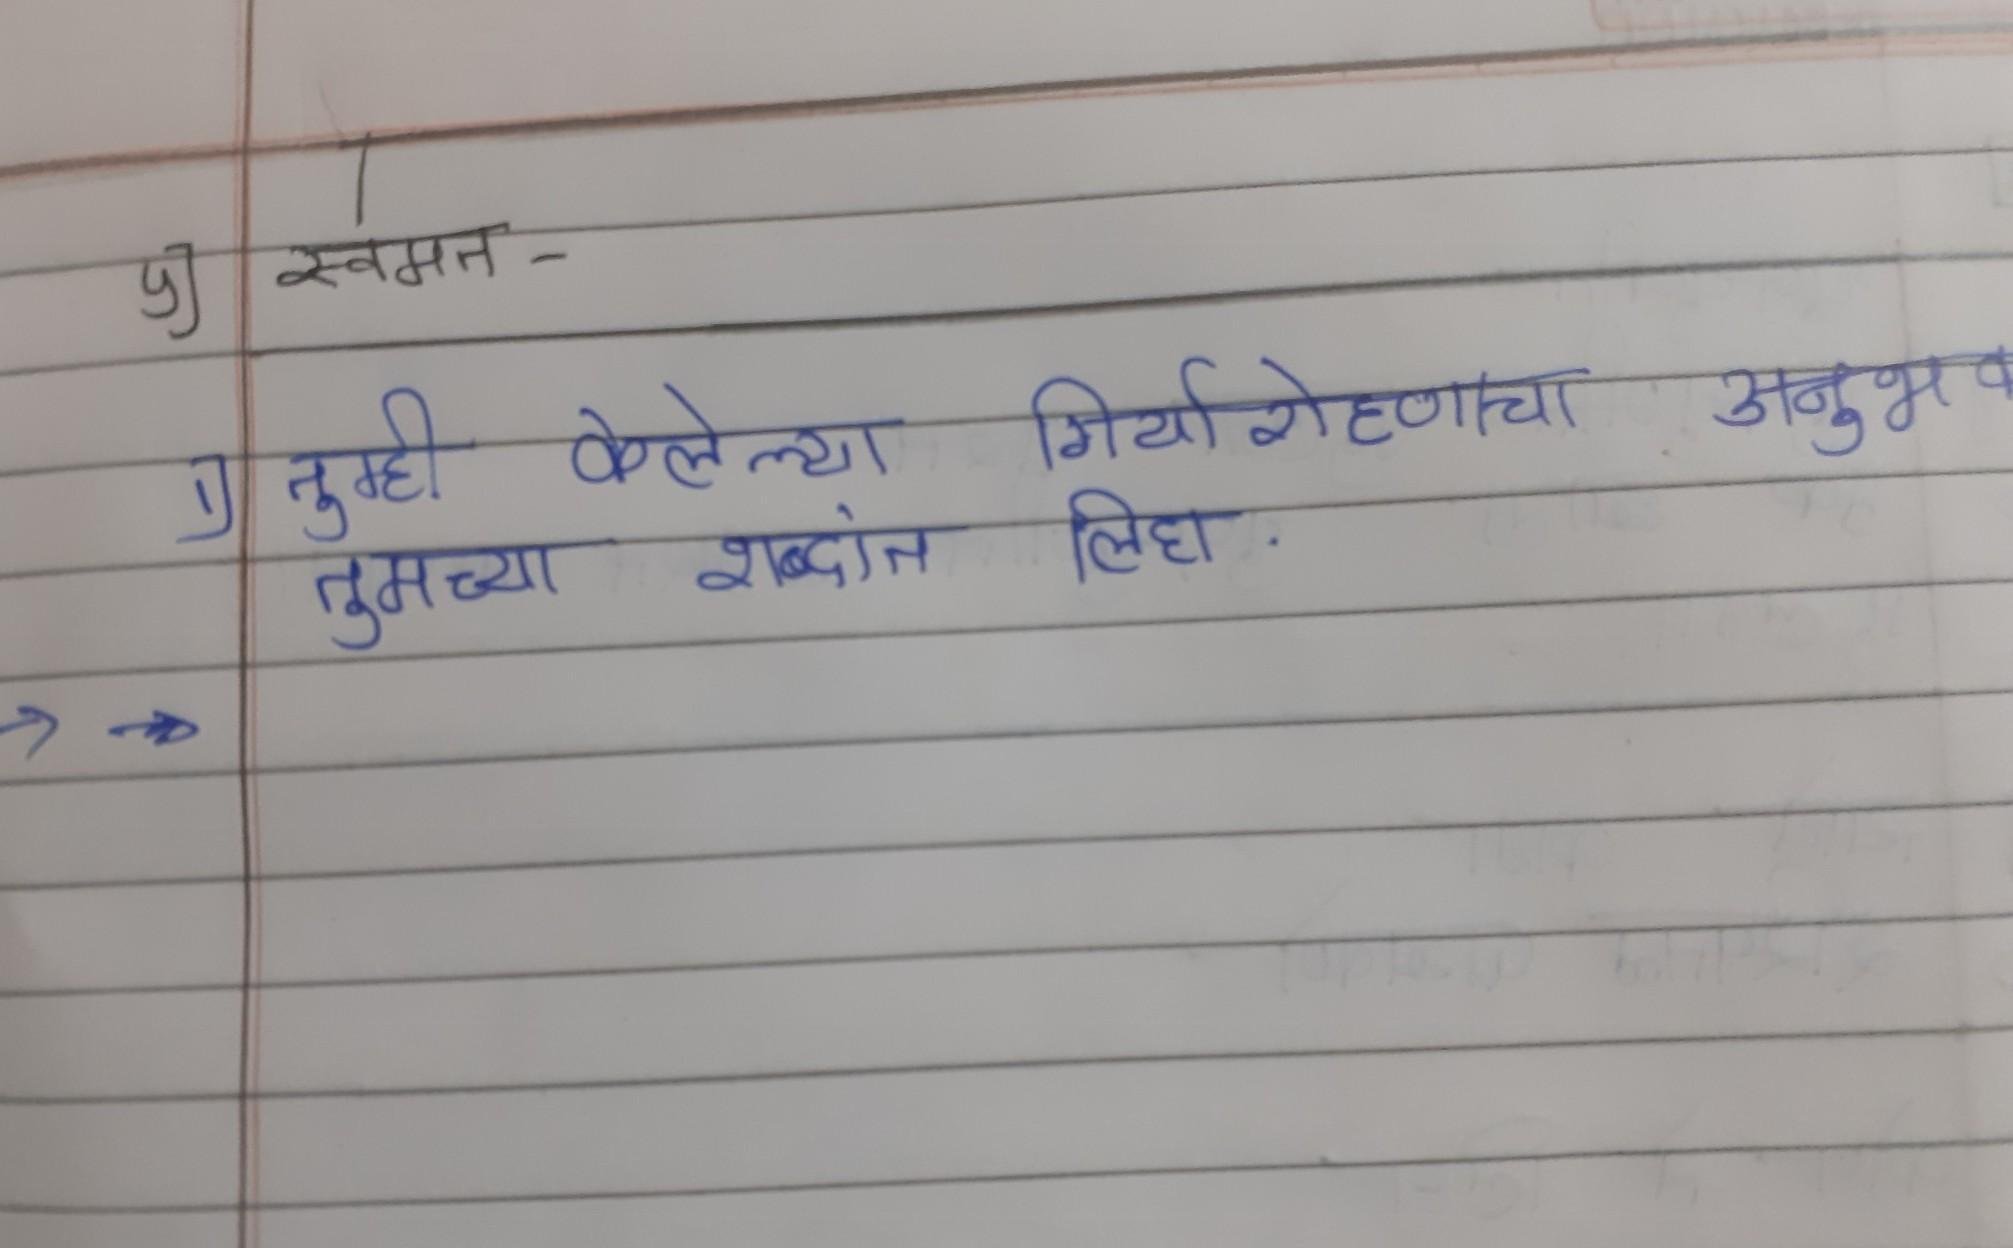 ५) स्वमत -
१) तुम्ही केलेल्या गिर्यारोहणाचा अनुभव
तुमच्या शब्दांत लिहा.
→ →